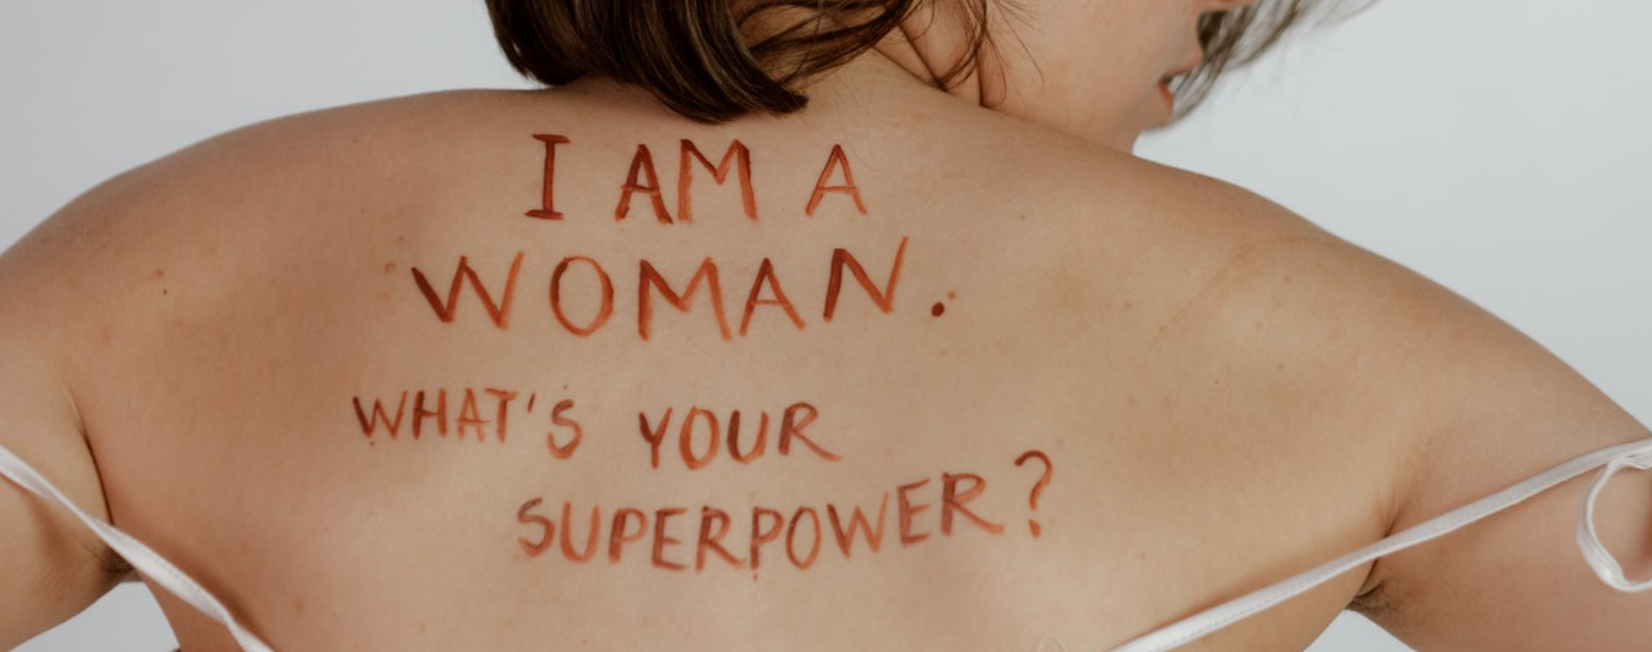 I AM A
WOMAN.
WHAT'S YOUR
SUPERPOWER?